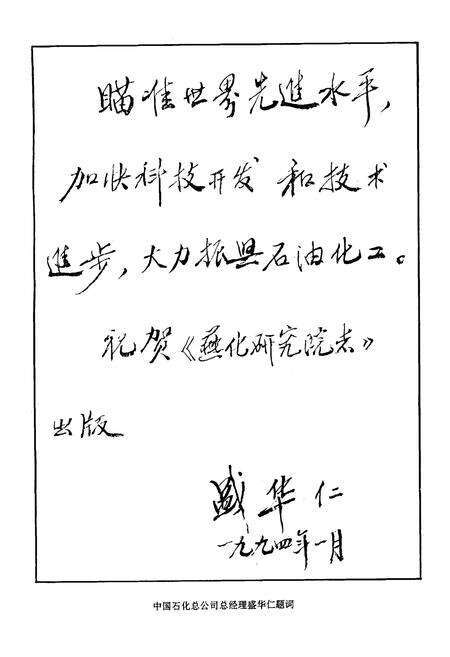 瞄准世界先進水平，
加快科技开发 和技术
進步，大力振興石油化工。
祝贺《燕化研究院志》
出版
盛华仁
一九九四年一月
中国石化总公司总经理盛华仁题词